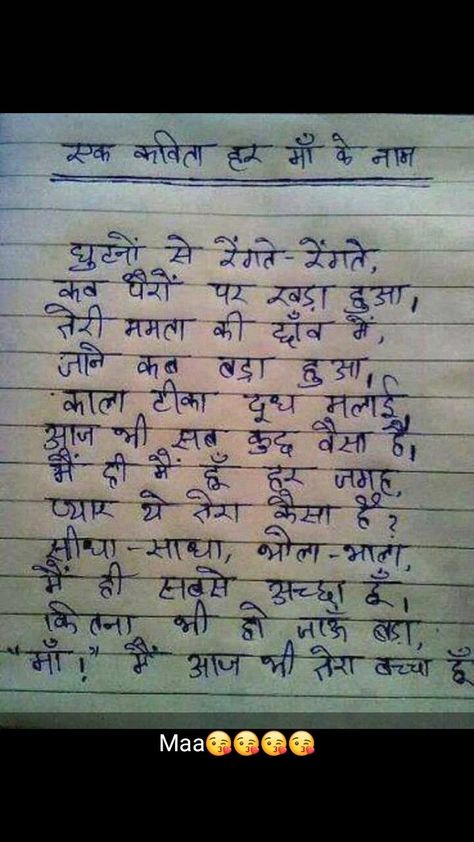 एक कविता हर माँ के नाम
घुटनों से रेंगते-रेंगते,
कब पैरों पर खड़ा हुआ,
तेरी ममता की छाँव में,
जाने कब बड़ा हुआ,
काला टीका दूध मलाई
आज भी सब कुछ वैसा है,
मैं ही मैं हूँ हर जगह,
प्यार ये तेरा कैसा है?
सीधा-साधा, भोला-भाला,
मैं ही सबसे अच्छा हूँ,
कितना भी हो जाऊँ बड़ा,
"माँ!" मैं आज भी तेरा बच्चा हूँ
Maa😘😘😘😘